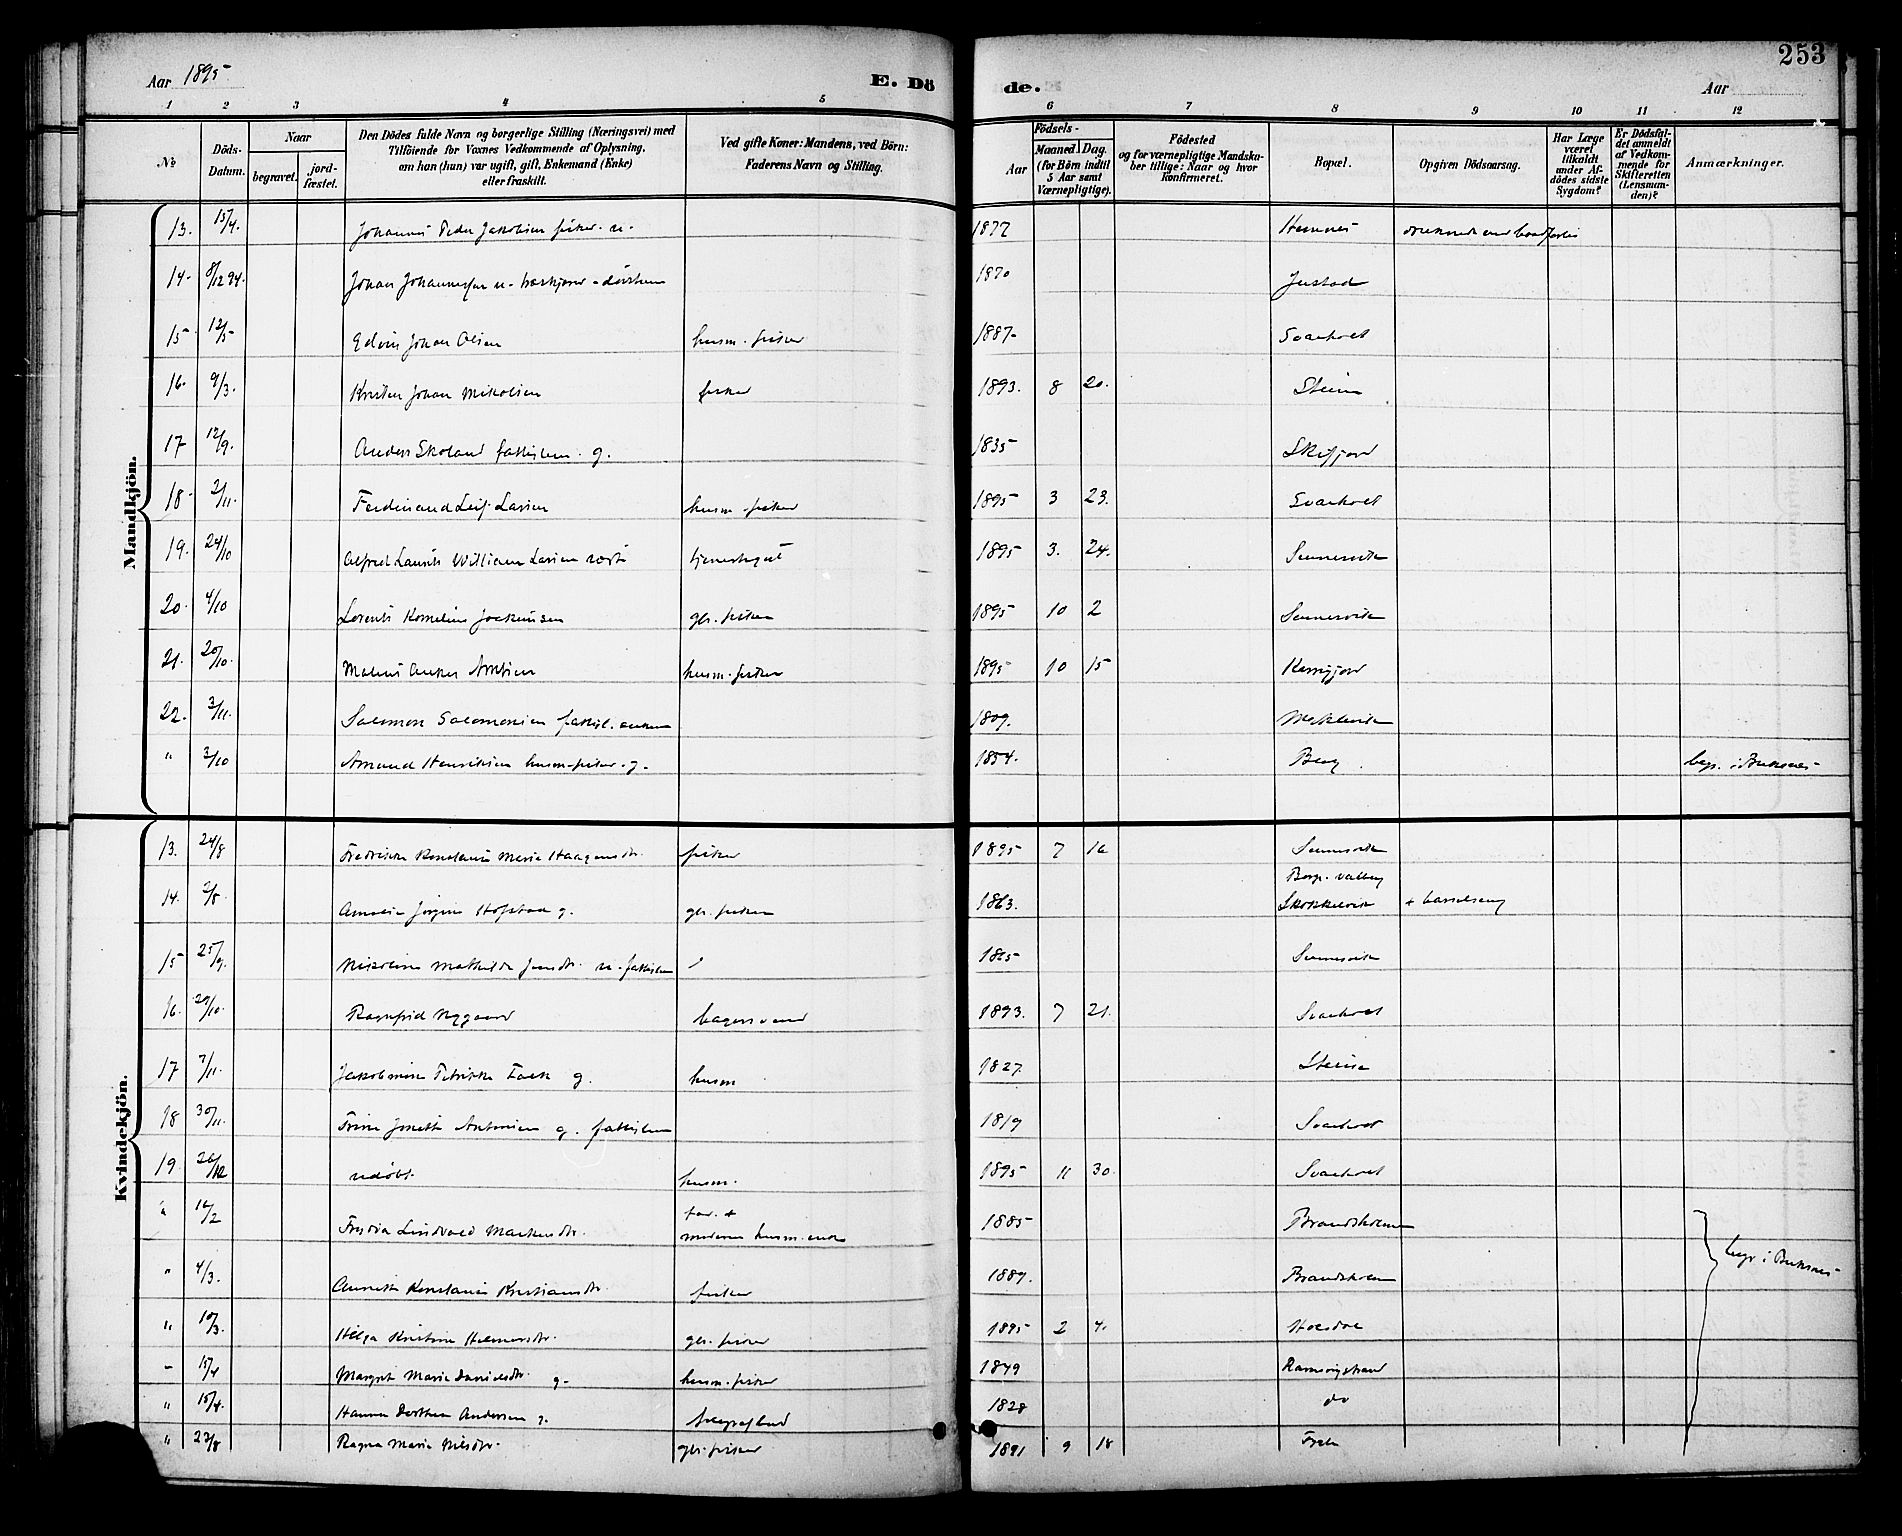 Aar 1895
E. Dö
de.
Aar
253
1 2 3 4 5 6 7 8 9 10 11 12
No
Döds-Datum.
Naar
begravet.
jord-fæstet.
Den Dödes fulde Navn og borgerlige Stilling (Næringsvei) med
Tilföiende for Voxnes Vedkommende af Oplysning,
om han (hun) var ugift, gift, Enkemand (Enke)
eller fraskilt.
Ved gifte Koner: Mandens, ved Börn:
Faderens Navn og Stilling.
Födsels-
Aar
Maaned Dag
(for Börn indtil
5 Aar samt
Værnepligtige).
Födested
og for værnepligtige Mandska-
ber tillige: Naar og hvor
konfirmeret.
Bopæl.
Opgiven Dödsaarsag.
Har Læge
været
tilkaldt
under Af-
dödes sidste
Sygdom?
Er Dödsfal-
det anmeldt
af Vedkom-
mende for
Skifteretten
(Lensman-
den)?
Anmærkninger.
Mandkjön.
13. 15/4. Johannes Peder Jakobsen fisker. u. 1877 Hemnes
14. 8/12 94. Johan Johannessen u. 1870 Justad
15 12/5 Edvin Johan Olsen husm. fisker 1887 Svarholt
16. 9/3. Kristen Johan Mikalsen fisker 1893. 8 20. Steine
17 12/9. Anders Skoland fattiglem. g. 1835 Skifjord
18. 2/11. Ferdinand Leif Larsen husm. fisker 1895 3 23. Svarholt
19. 24/10 Alfred Laurits William Larsen 1895 3. 24. Sennesvik
20. 4/10 Lorents Kornelius Joakimsen gbr. fisker 1895 10 2 Sennesvik
21. 20/10. Anker Arntsen husm. fisker 1895 10 15
22. 3/11. Salomon Salomonsen 1809.
" 3/10 Amund Henriksen husm. fisker. g. 1854. Berg begr. i Buksnes
Kvindekjön.
13. 24/8 Fredrikke Konstanse Marie Haagensdr. fisker 1895 7 16 Sennesvik
Borge. Valberg
14. 2/8. Amalia Jörgine Hofstad g. gbr. fisker 1863. + barselseng
15 25/9. Nikoline Mathilde Jensdr. u. fattiglem 1865 Sennesvik
16. 29/10. Ragnfrid Nygaard bagersvend 1893. 7 21. Svarholt
17 7/11. Jakobmine Petrikke Falk g. husm 1827. Steine
18 30/11. Trine Jonette Antonsen g. fattiglem 1819 Svarholt
19. 26/12 udöbt. husm. 1895 11 30. Svarholt
far. +
" 16/2 Lindvald Markusdr. moderen husm. enke 1885 Brandsholmen
begr. i Buksnes
" 4/3. Annette Konstanse Kristiansdr. fisker 1889. Brandsholmen
" 10/3. Helga Kristine Helmersdr. gbr. fisker 1895 2 4. Holsdal
" 15/4 Margret Marie Danielsdr. g. husm. fisker 1849 Ramsvigstrand
" 15/4. Hanna Dorthea Andersen g. 1828 do
" 23/8 Ragna Marie Nilsdr. gbr. fisker 1891 9 18